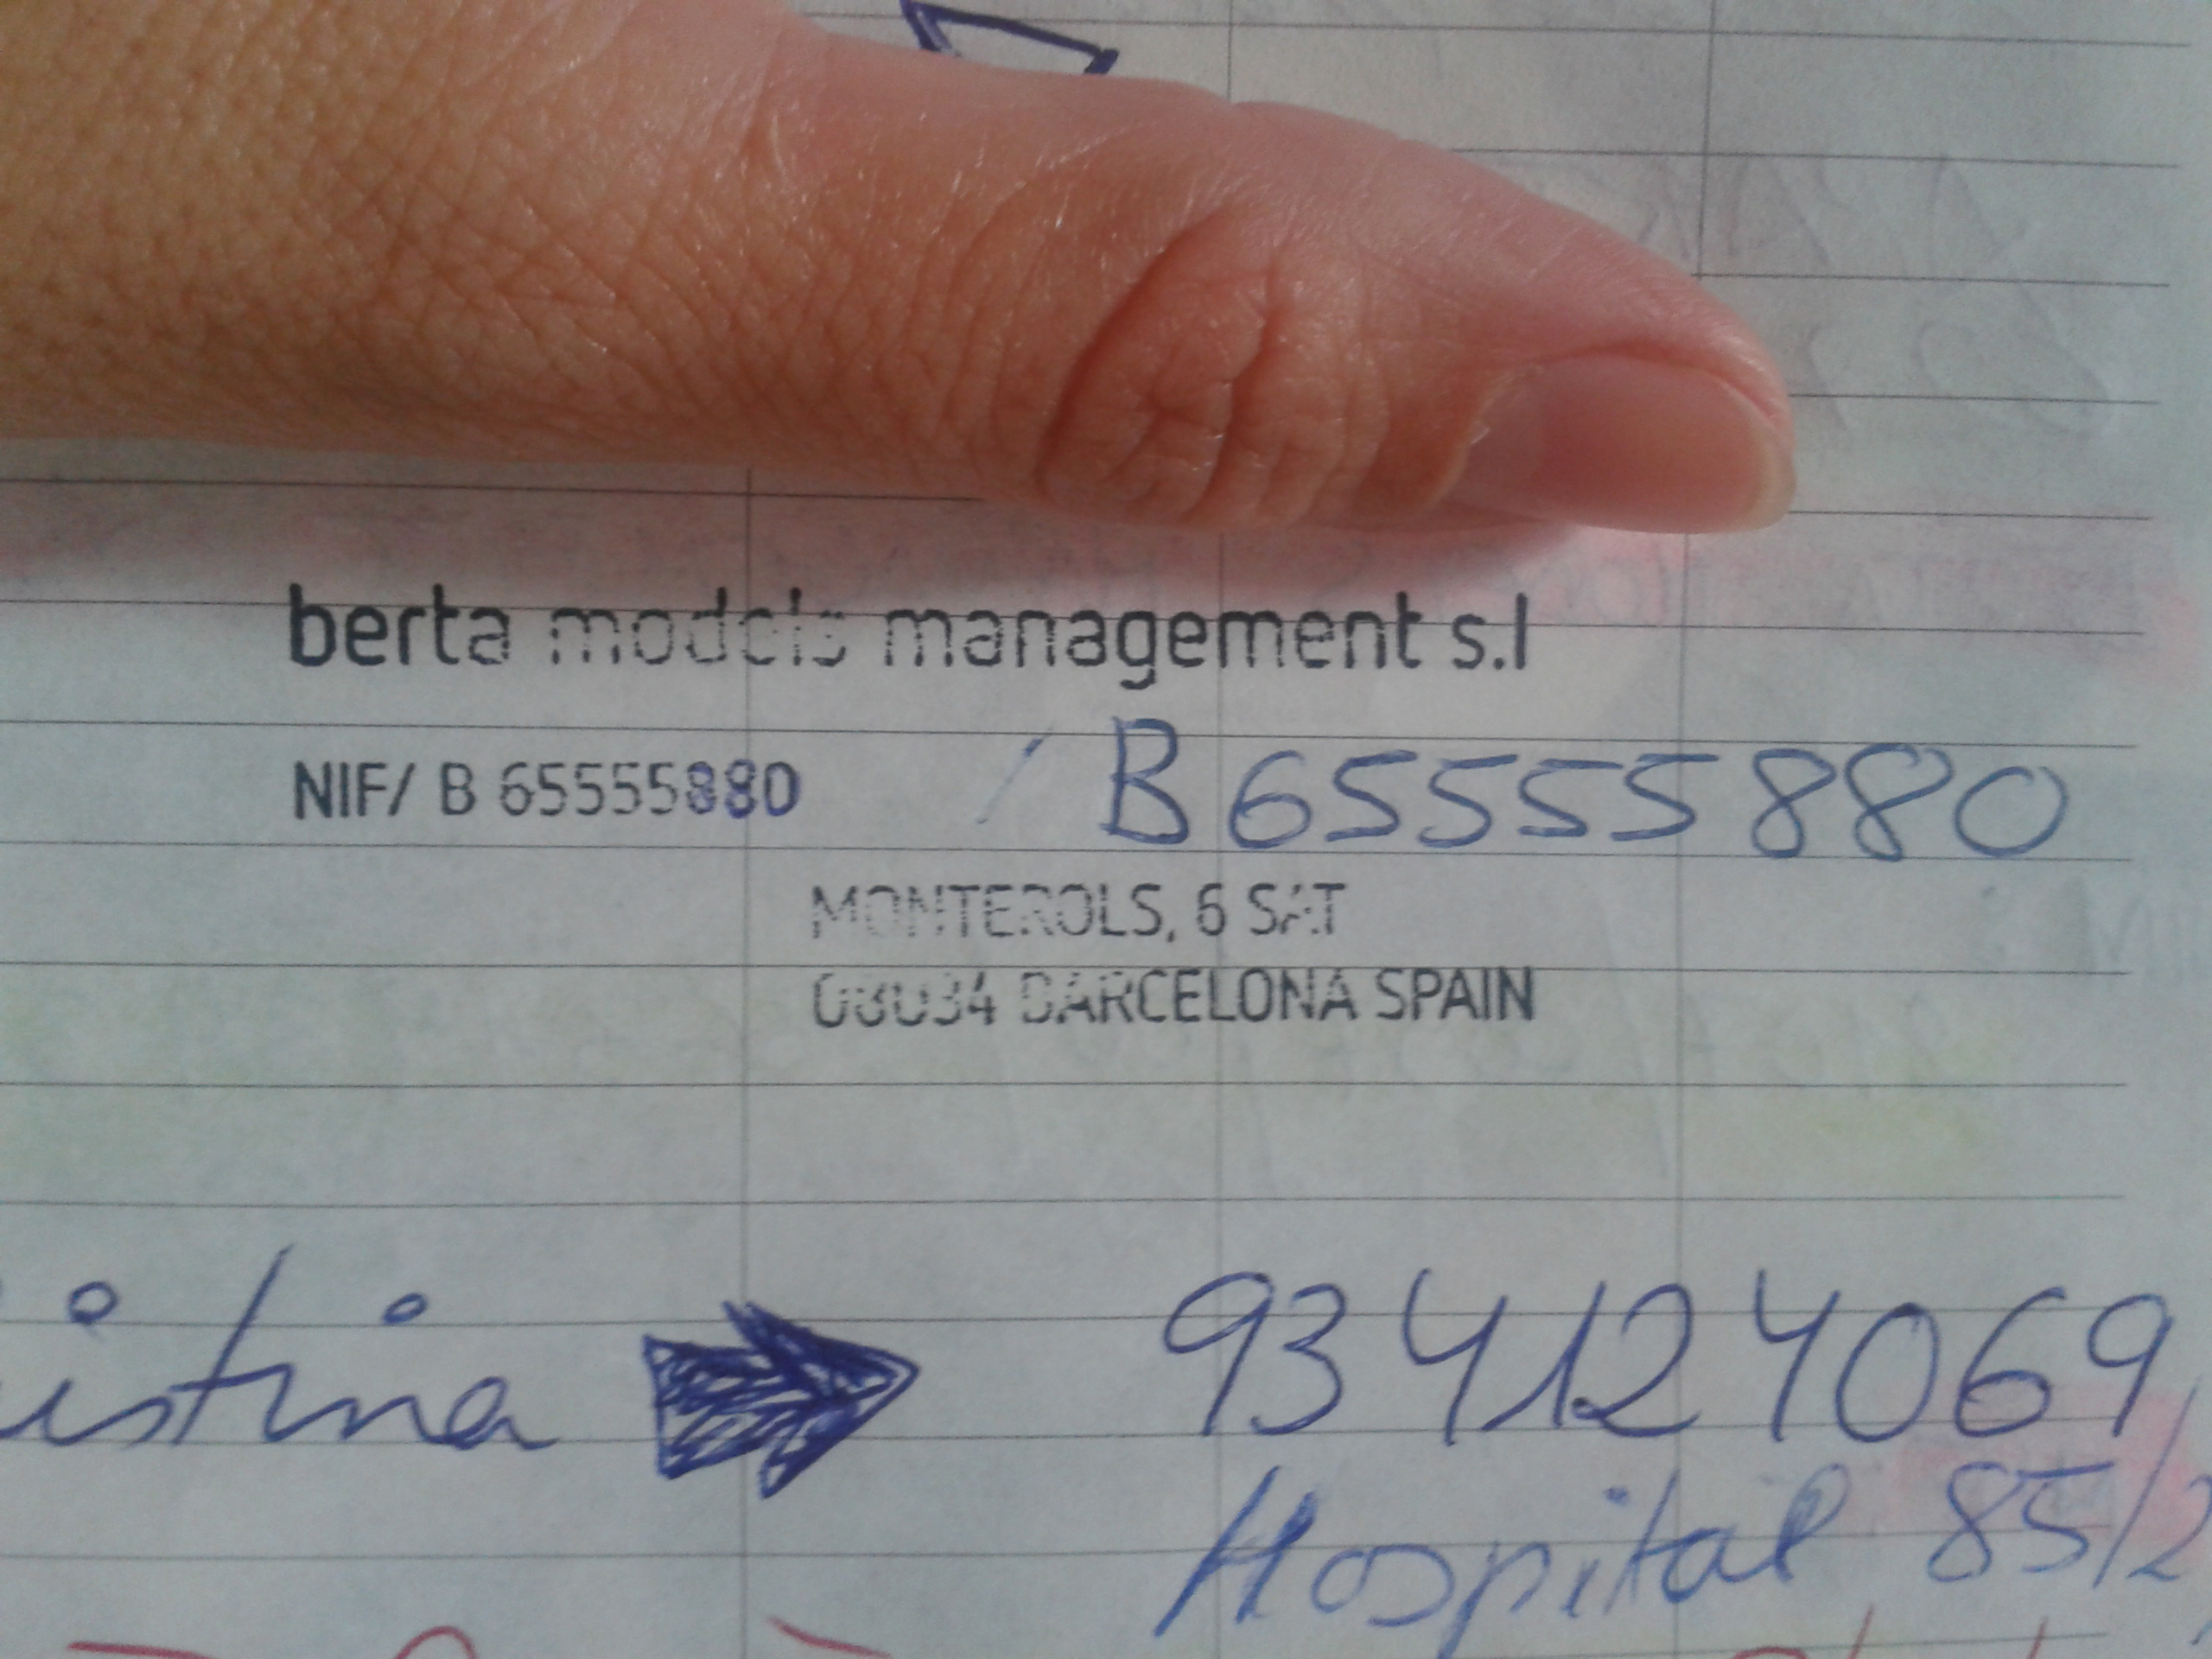 berta models management s.l
NIF/ B 65555880 / B65555880
MONTEROLS, 6 SAT
08034 BARCELONA SPAIN
istina 934124069
Hospital 85/2